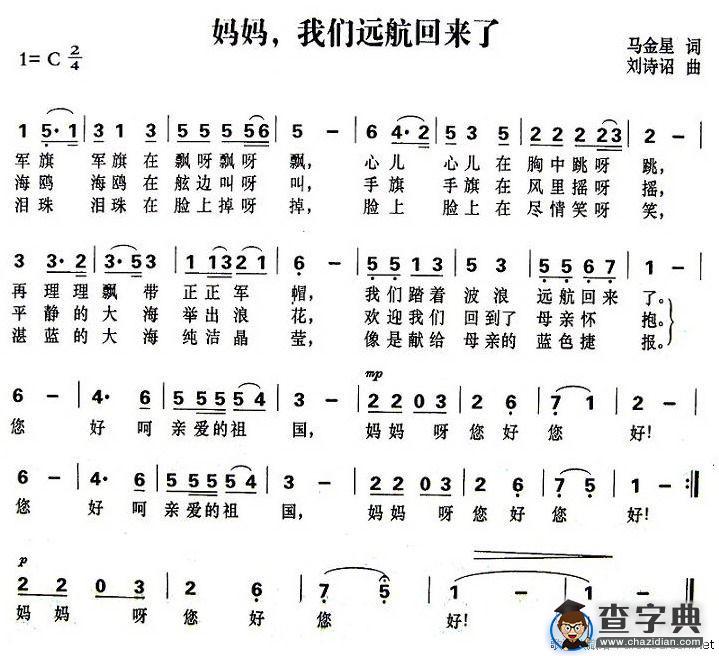 妈妈，我们远航回来了
1= C 2/4
马金星 词
刘诗诏 曲
1 5· 1 | 3 1 3 | 5 5 5 5 6 | 5 – | 6 4· 2 | 5 3 5 | 2 2 2 2 3 | 2 – |
军旗 军旗在飘呀飘呀 飘， 心儿 心儿在胸中跳呀 跳，
海鸥 海鸥在舷边叫呀 叫， 手旗 手旗在风里摇呀 摇，
泪珠 泪珠在脸上掉呀 掉， 脸上 脸上在尽情笑呀 笑，
3 3· 2 | 3· 5 3 | 1 1 3 2 1 | 6 – | 5 5 1 3 | 5 3 | 5 5 6 7 | 1 – |
再理理飘带 正正军 帽， 我们踏着 波浪 远航回来 了。
平静的大海 举出浪 花， 欢迎我们 回到了母亲怀 抱。
湛蓝的大海 纯洁晶 莹， 像是献给 母亲的蓝色捷 报。
mp
6 – | 4· 6 | 5 5 5 5 4 | 3 – | 2 2 0 3 | 2 6 | 7 1 | 2 – |
您 好呵亲爱的祖 国， 妈妈 呀您好您 好！
6 – | 4· 6 | 5 5 5 5 4 | 3 – | 2 2 0 3 | 2 6 | 7 5 | 1 – :||
您 好呵亲爱的祖 国， 妈妈 呀您好您 好！
p
2 2 0 3 | 2 6 | 7 5 | 1 – | 1 –
妈妈 呀 您 好 您 好！
查字典
www.chazidian.com